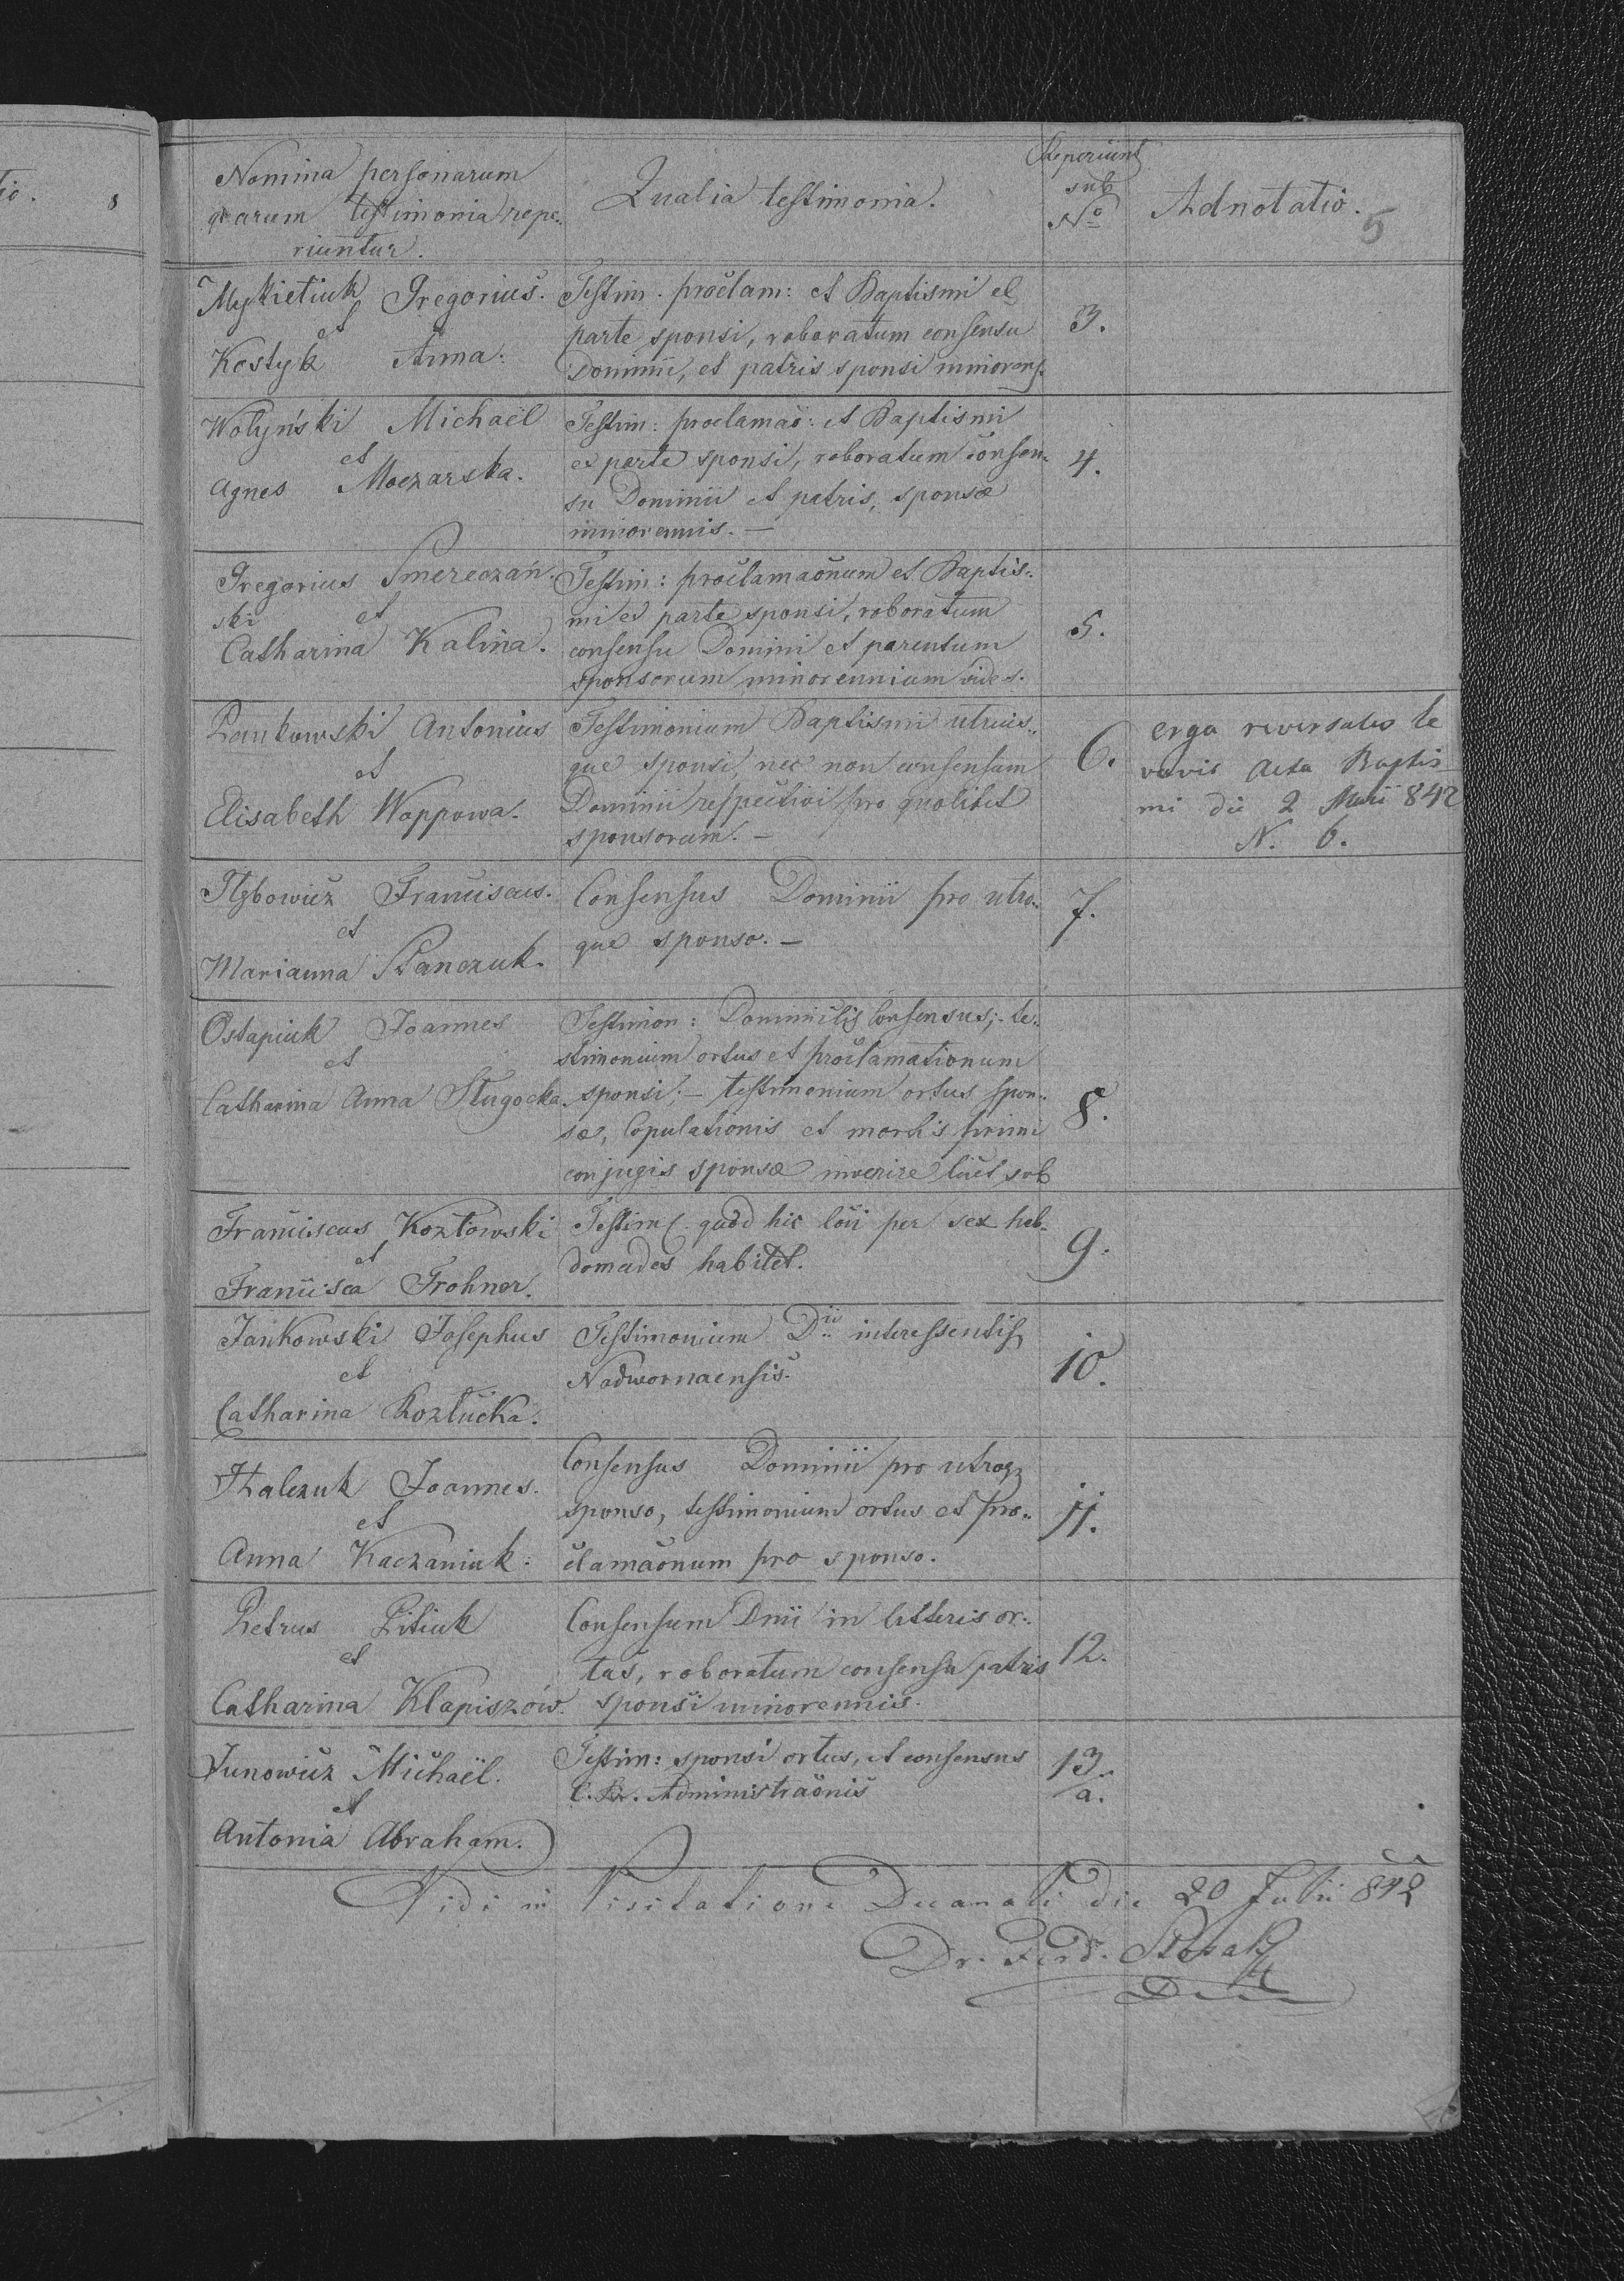 tio.
Nomina personarum
quarum testimonia repe-
riuntur.
Qualia testimonia.
Reperiunt
sub
No
Adnotatio.
5
Mykietiuk Gregorius.
et
Kostyk Anna.
Testim. proclam: et Baptismi ex
parte sponsi, roboratum consensu
Dominii, et patris sponsi minorens.
3.
Wołyński Michaël
et
Agnes Moczarska.
Testim: proclamao: et Baptismi
ex parte sponsi, roboratum consen-
su Dominii et patris, sponsæ
minorennis. —
4.
Gregorius Smereczań-
ski et
Catharina Kalina.
Testim: proclamaonum et Baptis-
mi ex parte sponsi, roboratum
consensu Domini et parentum
sponsorum minorennium vide s.
5.
Pankowski Antonius
et
Elisabeth Woppowa.
Testimonium Baptismi utrius-
que sponsi, nec non consensum
Dominii respectivi pro qualibet
sponsorum. —
6.
erga reversales le
vavis acta Baptis
mi die 2 Maii 842
N. 6.
Franciscus.
et
Marianna Stanczuk.
Consensus Dominii pro utro-
que sponso. —
7.
Ostapiuk Joannes
et
Catharina Anna Długocka.
Testimon: Dominialis Consensus; te-
stimonium ortus et proclamationum
sponsi; — testimonium ortus spon-
sæ, Copulationis et mortis primi
conjugis sponsæ invenire licet sub
8.
Franciscus Kozłowski
et
Francisca Frohner.
Testim. quod hic loci per sex heb-
domades habitet.
9.
Jankowski Josephus
et
Catharina Kozłucka.
Testimonium Dii interessentis
Nadwornaensis.
10.
Halczuk Joannes.
et
Anna Kaczaniuk.
Consensus Dominii pro utroq
sponso, testimonium ortus et pro-
clamaonum pro sponso.
11.
Petrus Pitiuk
et
Catharina Klapiszów.
Consensum Dnii in litteris or-
tus, roboratum consensu patris
sponsi minorennis.
12.
Junowicz Michaël.
et
Antonia Abraham.
Testim: sponsi ortus, et consensus
C. R. Administraonis
13.
a.
Vidi in Visitatione Decanali die 20 Julii 842
Dr. Ferd.